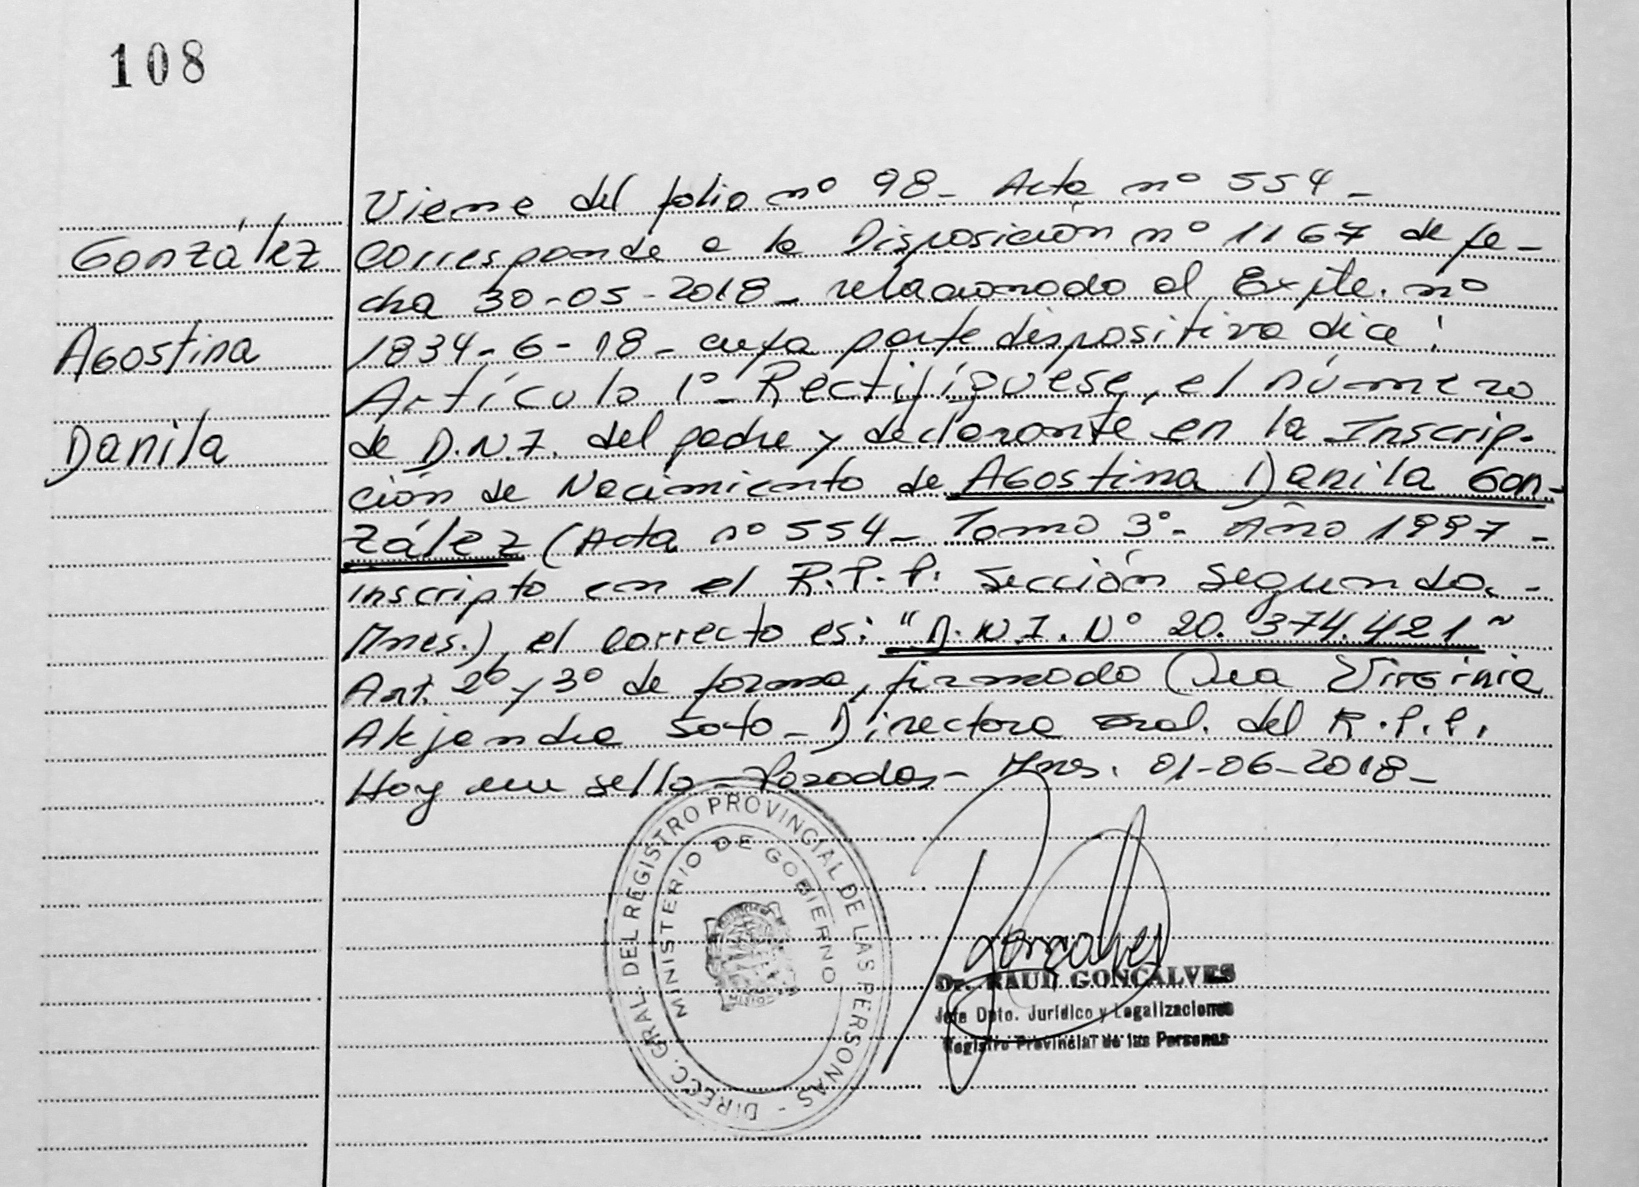 108
González
Agostina
Danila
Viene del folio nº 98_ Acta nº 554_
Corresponde a la Disposición nº 1167 de fe_
cha 30-05-2018_ relacionado al Expte. nº
1834-6-18_ cuya parte dispositiva dice:
Artículo 1º_ Rectifíquese, el número
de D.N.I. del padre y declarante en la Inscrip-
ción de Nacimiento de Agostina Danila Gon-
zález (Acta nº 554_ Tomo 3º_ Año 1997_
inscripto en el R.P.P. Sección Segunda_
Mnes.), el correcto es: "D.N.I. Nº 20.374.421"
Art. 2º y 3º de forma, firmado Dra Virginia
Alejandra Soto_ Directora Gral. del R.P.P.
Hay un sello_ Posadas_ Mnes. 01-06-2018_
DIRECC. GRAL. DEL REGISTRO PROVINCIAL DE LAS PERSONAS -
MINISTERIO DE GOBIERNO
Dr. RAUL GONCALVES
Jefe Dpto. Jurídico y Legalizaciones
Registro Provincial de las Personas